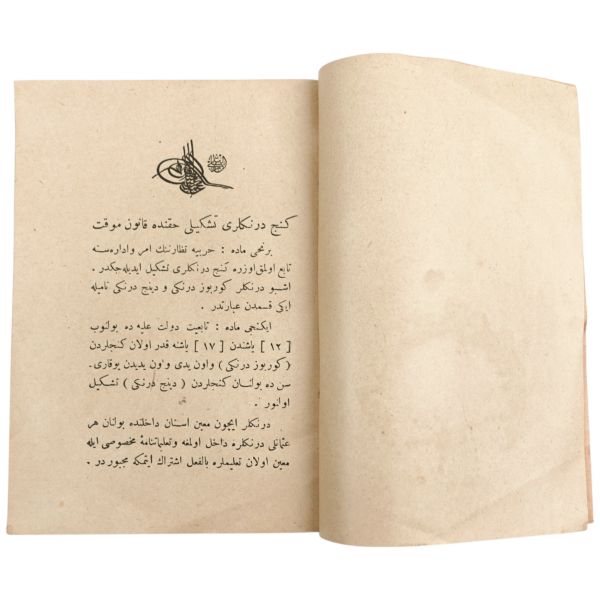 كنج درنكلرى تشكيلى حقنده قانون موقت
برنجى ماده : حربيه نظارتنك امر و اداره سنه
تابع اولمق اوزره كنج درنكلرى تشكيل ايديله جكدر .
اشبو درنكلر كوربوز درنكى و دينج درنكى ناميله
ايكى قسمدن عبارتدر .
ايكنجى ماده : تابعيت دولت عليه ده بولنوب
[ ١٢ ] ياشندن [ ١٧ ] ياشنه قدر اولان كنجلردن
( كوربوز درنكى ) و اون يدى و اون يديدن يوقارى
سن ده بولنان كنجلردن ( دينج درنكى ) تشكيل
اولنور .
درنكلر ايچون معين اسنان داخلنده بولنان هر
عثمانلى درنكلره داخل اولمغه و تعليماتنامهٔ مخصوصى ايله
معين اولان تعليملره بالفعل اشتراك ايتمكه مجبور در .